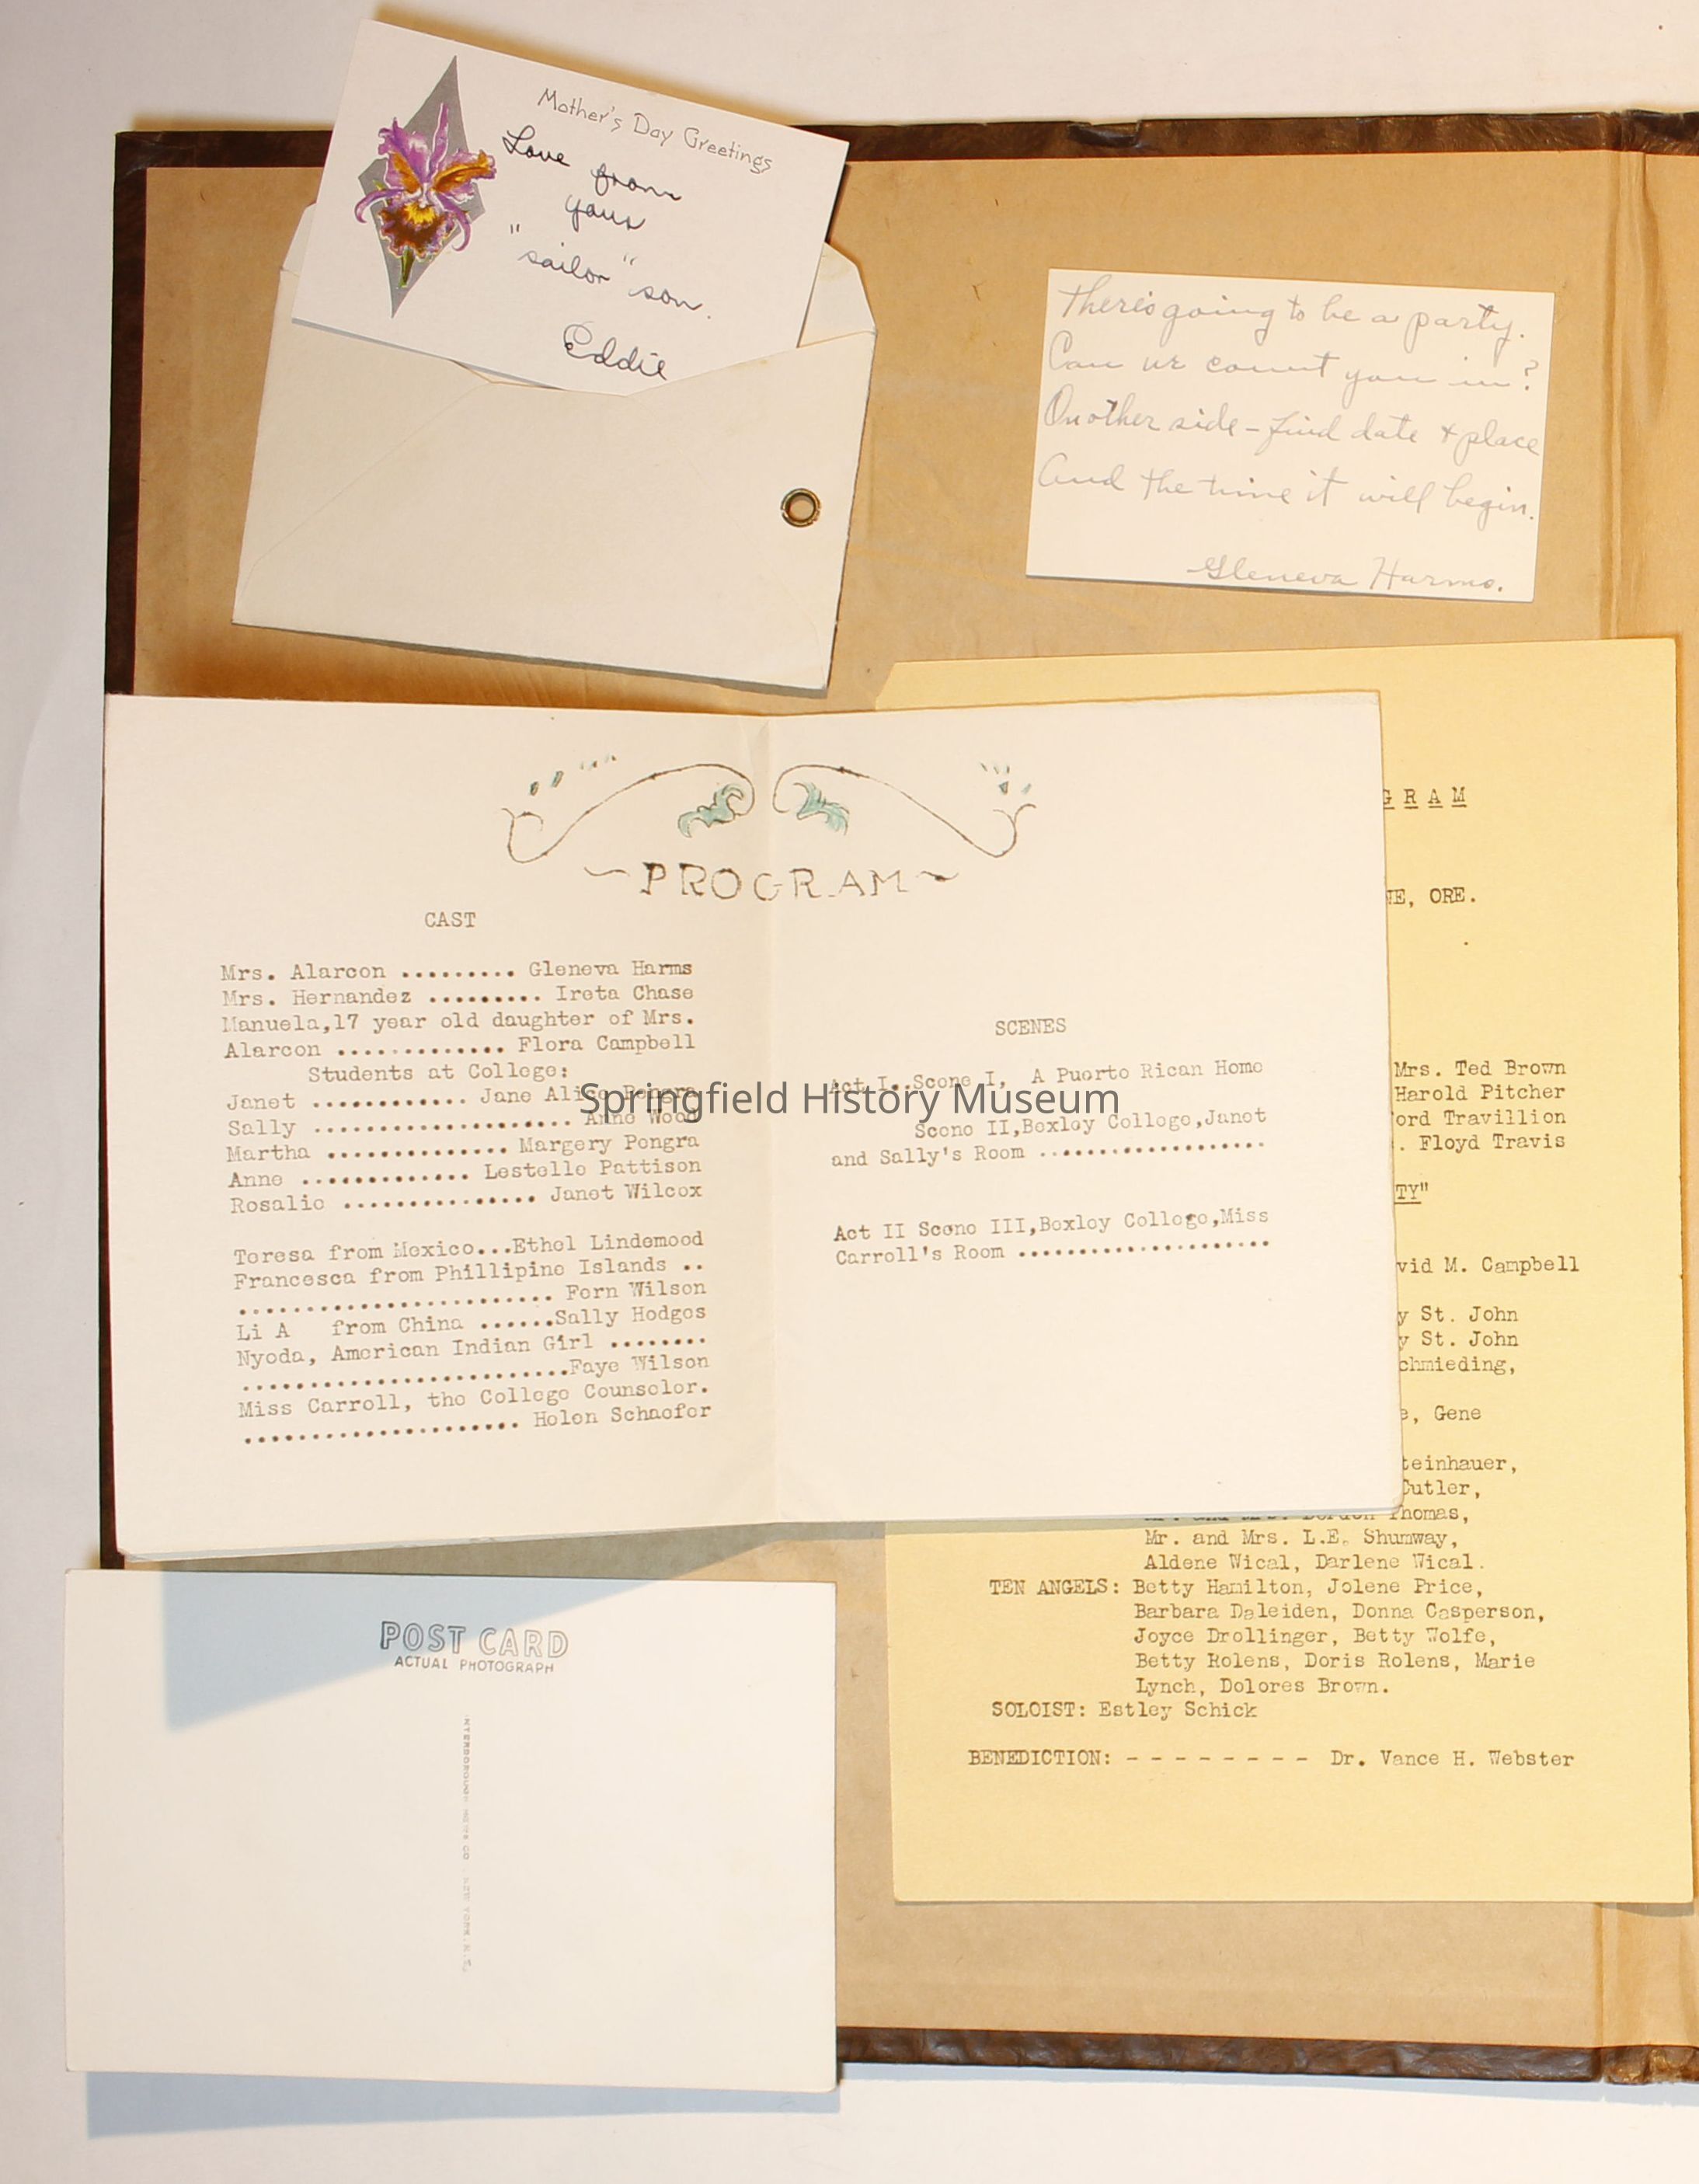 Mother's Day Greetings
Love from
your
"sailor" son.
Eddie
There's going to be a party.
Can we count you in?
On other side - find date + place
And the time it will begin.
Gleneva Harms.
~PROGRAM~
CAST
Mrs. Alarcon ......... Gleneva Harms
Mrs. Hernandez ......... Ireta Chase
Manuela,17 year old daughter of Mrs.
Alarcon ............. Flora Campbell
Students at College:
Janet ............ Jane Alice Pengra
Sally .................... Anne Wood
Martha ............... Margery Pengra
Anne ............. Lestelle Pattison
Rosalie ................ Janet Wilcox
Teresa from Mexico...Ethel Lindemood
Francesca from Phillipine Islands ..
......................... Fern Wilson
Li A from China ......Sally Hodges
Nyoda, American Indian Girl ........
..........................Faye Wilson
Miss Carroll, the College Counselor.
...................... Helen Schaefer
SCENES
Act I..Scene I, A Puerto Rican Home
Scene II,Boxley College,Janet
and Sally's Room ...................
Act II Scene III,Boxley College,Miss
Carroll's Room .....................
Springfield History Museum
GRAM
NE, ORE.
Mrs. Ted Brown
Harold Pitcher
ord Travillion
. Floyd Travis
TY"
vid M. Campbell
y St. John
y St. John
chmieding,
e, Gene
teinhauer,
Cutler,
Thomas,
Mr. and Mrs. L.E. Shumway,
Aldene Wical, Darlene Wical.
TEN ANGELS: Betty Hamilton, Jolene Price,
Barbara Daleiden, Donna Casperson,
Joyce Drollinger, Betty Wolfe,
Betty Rolens, Doris Rolens, Marie
Lynch, Dolores Brown.
SOLOIST: Estley Schick
BENEDICTION: - - - - - - - - Dr. Vance H. Webster
POST CARD
ACTUAL PHOTOGRAPH
INTERBOROUGH NEWS CO NEW YORK, N.Y.